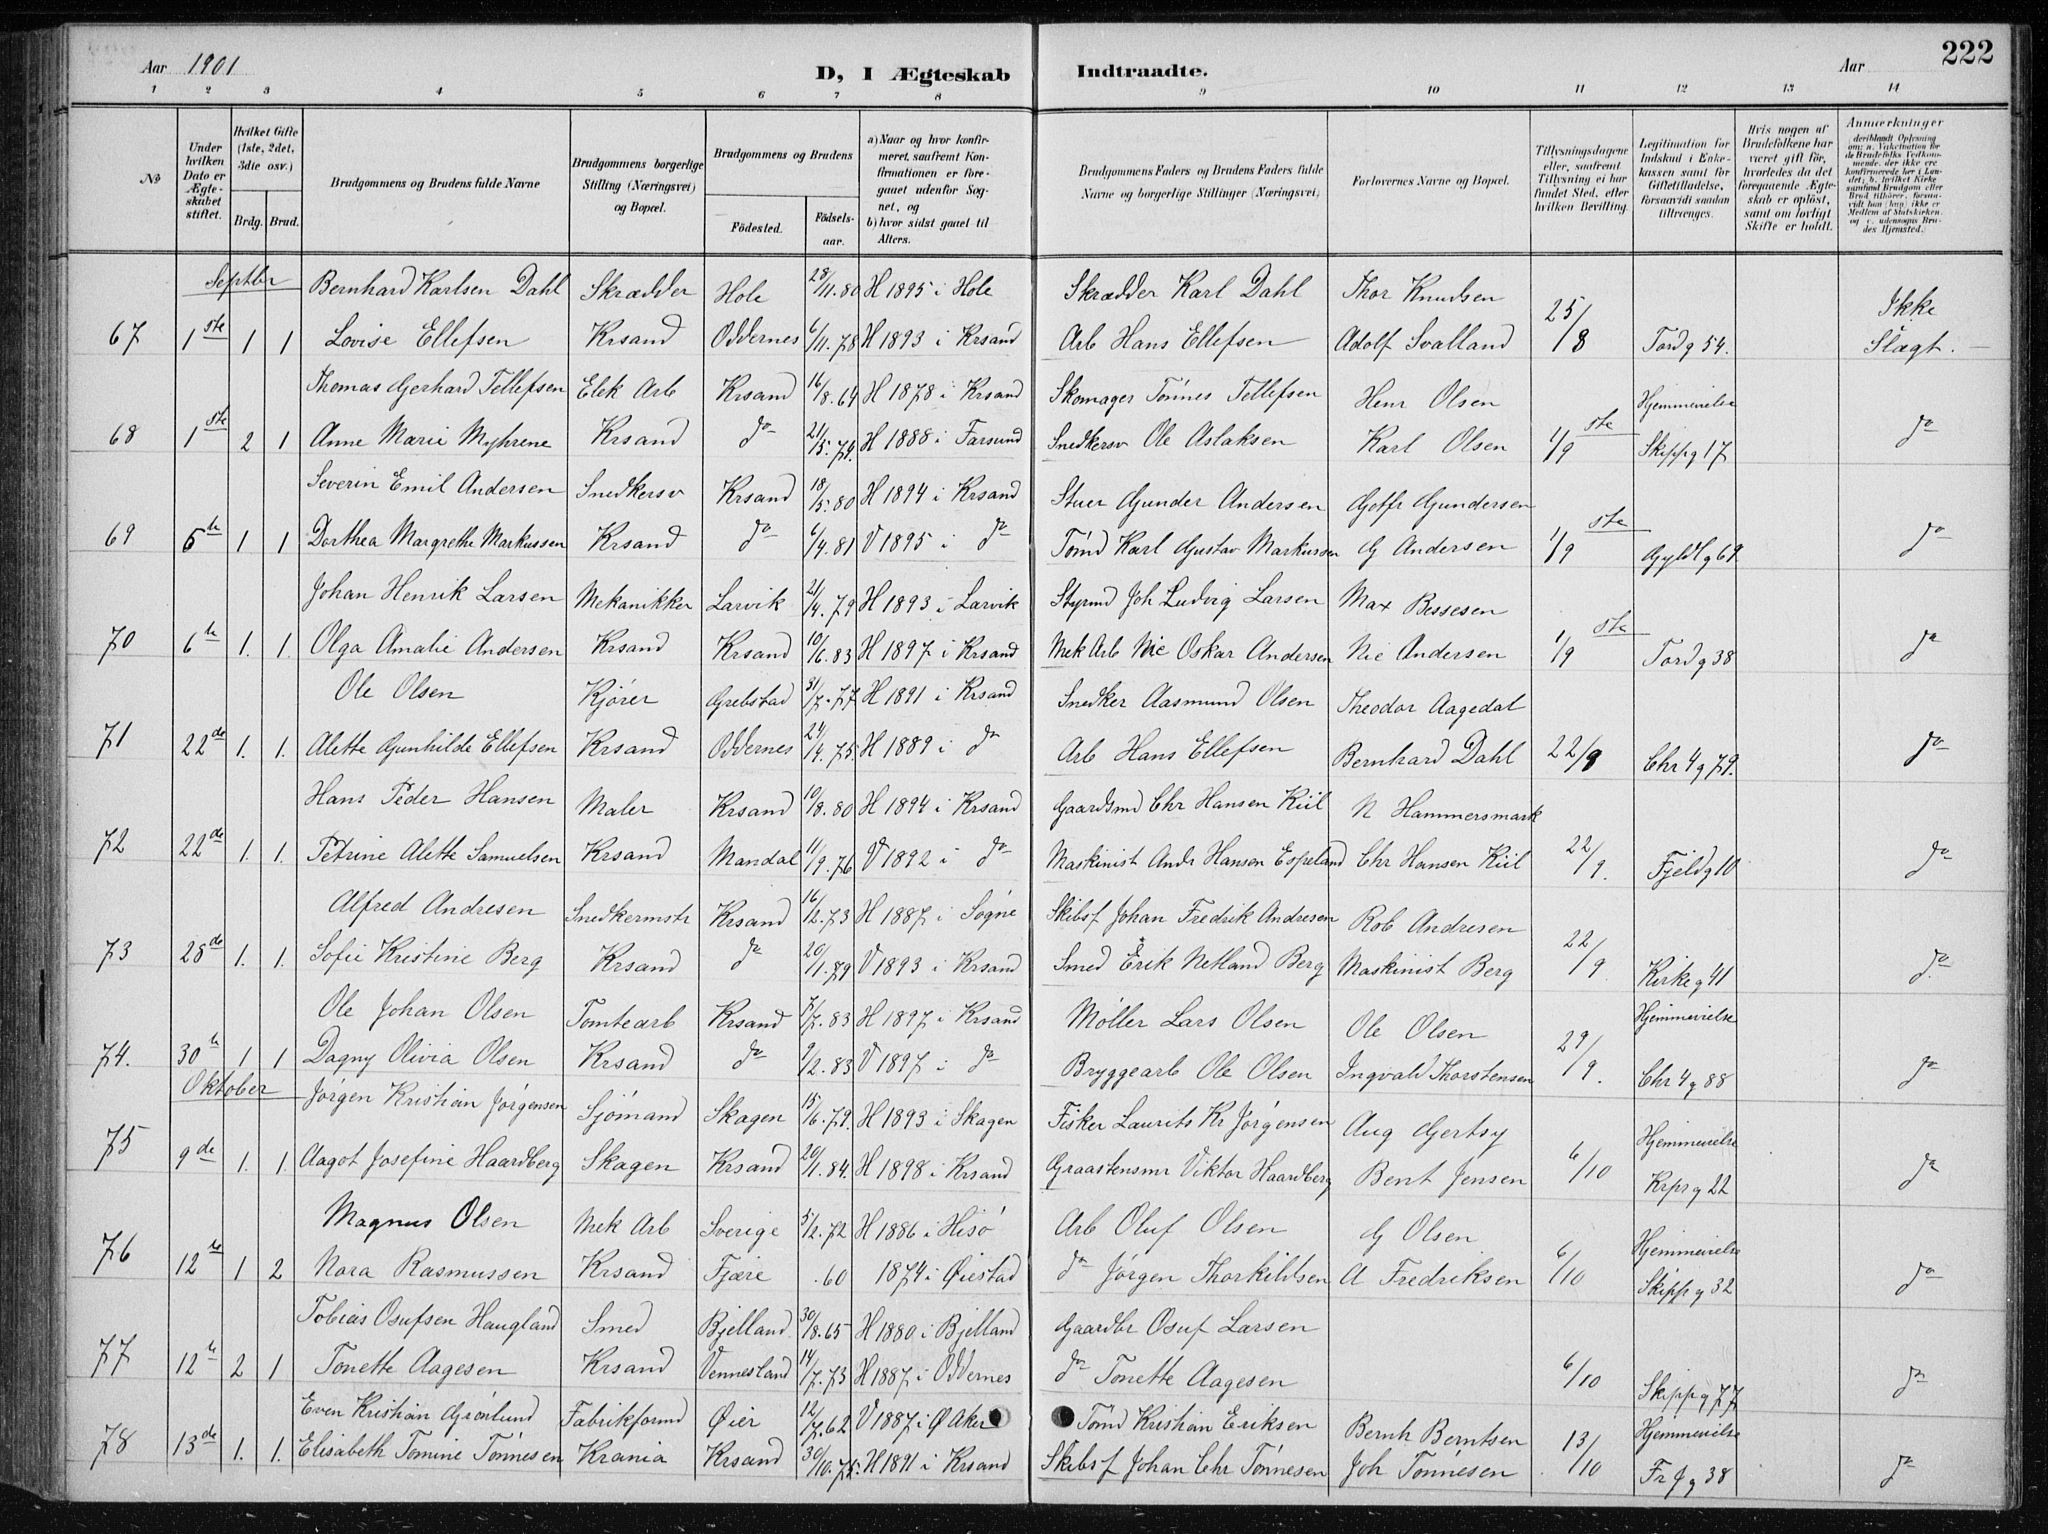 Aar 1901
D, I Ægteskab
Indtraadte.
Aar
222
1 2 3 4 5 6 7 8 9 10 11 12 13 14
No
Under hvilken Dato er Ægteskabet stiftet.
Hvilket Gifte (1ste, 2det, 3die osv.)
Brdg. Brud.
Brudgommens og Brudens fulde Navne
Brudgommens borgerlige Stilling (Næringsvei) og Bopæl.
Brudgommens og Brudens
Fødested.
Fødselsaar.
a) Naar og hvor konfirmeret, saafremt Konfirmationen er foregaaet udenfor Sognet, og
b) hvor sidst gaaet til Alters.
Brudgommens Faders og Brudens Faders fulde Navne og borgerlige Stillinger (Næringsvei)
Forlovernes Navne og Bopæl.
Tillysningsdagene eller, saafremt Tillysning ei har fundet Sted, efter hvilken Bevilling.
Legitimation for Indskud i Enkekassen samt for Giftetilladelse, forsaavidt saadan tiltrænges.
Hvis nogen af Brudefolkene har været gift før, hvorledes da det foregaaende Ægteskab er opløst, samt om lovligt Skifte er holdt.
Anmærkninger
Septbr Bernhard Karlsen Dahl Skrædder Hole 28/11.80 H 1895 i Hole Skrædder Karl Dahl Thor Knudsen
67 1ste 1 1 Lovise Ellefsen Krsand Oddernes 6/11.78 H 1893 i Krsand Arb Hans Ellefsen Adolf Svalland 25/8 Tordg 54. Ikke Slægt.
Thomas Gerhard Tellefsen Elek Arb Krsand 16/8.64 H 1878 i Krsand Skomager Tønnes Tellefsen Henr Olsen Hjemmevielse
68 1ste 2 1 Anne Marie Myhrene Krsand do 21/5.74. H 1888 i Farsund Snedkersv Ole Aslaksen Karl Olsen 1ste/9 Skippg 17 do
Severin Emil Andersen Snedkersv Krsand 18/5.80 H 1894 i Krsand Stuer Gunder Andersen Gotfr Gundersen
69 5te 1 1 Dorthea Margrethe Markussen Krsand do 6/4.81 V 1895 i do Tømd Karl Gustav Markussen G Andersen 1ste/9 Gyldlg 69 do
Johan Henrik Larsen Mekanikker Larvik 21/4.79 H 1893 i Larvik Styrmd Joh Ludvig Larsen Max Bessesen
70 6te 1. 1. Olga Amalie Andersen Krsand Krsand 10/6.83 H 1897 i Krsand Mek Arb Nic Oskar Andersen Nic Andersen 1ste/9 Tordg 38 do
Ole Olsen Kjører Grebstad 31/7.77 H 1891 i Krsand Snedker Aasmund Olsen Theodor Aagedal
71 22de 1. 1. Alette Gunhilde Ellefsen Krsand Oddernes 24/4.75. H 1889 i do Arb Hans Ellefsen Bernhard Dahl 22/9 Chr 4 g 79. do
Hans Peder Hansen Maler Krsand 10/8.80 H 1894 i Krsand Gaardsmd Chr Hansen Kiil N Hammersmark
72 22de 1. 1. Petrine Alette Samuelsen Krsand Mandal 11/9.76 V 1892 i do Maskinist Andr Hansen Espeland Chr Hansen Kiil 22/9. Fjeldg 10 do
Alfred Andresen Snedkermstr Krsand 16/12.73 H 1887 i Søgne Skibsf Johan Fredrik Andresen Rob Andresen
73 28de 1. 1. Sofie Kristine Berg Krsand do 20/1.79 V 1893 i Krsand Smed Erik Netland Berg Maskinist Berg 22/9. Kirkeg 41 do
Ole Johan Olsen Tomtearb Krsand 7/7.83 H 1897 i Krsand Møller Lars Olsen Ole Olsen Hjemmevielse
74. 30te 1 1 Dagny Olivia Olsen Krsand do 9/2.83 V 1897 i do Bryggearb Ole Olsen Ingvald Thorstensen 29/9. Chr 4 g 88 do
Oktober Jørgen Kristian Jørgensen Sjømand Skagen 15/6.79. H 1893 i Skagen Fisker Laurits Kr Jørgensen Aug Gertsy Hjemmevielse
75 9de 1. 1. Aagot Josefine Haardberg Skagen Krsand 20/1.84. H 1898 i Krsand Graastensmr Viktor Haardberg Bent Jensen 6/10 Krprg 22 do
Magnus Olsen Mek Arb Sverige 5/2.72 H 1886 i Hisø Arb Oluf Olsen G Olsen Hjemmevielse
76 12te 1 2 Nora Rasmussen Krsand Fjære .60 1874 i Øiestad do Jørgen Thorkildsen A Fredriksen 6/10 Skippg 32 do
Tobias Osufsen Haugland Smed Bjelland 30/8.65 H 1880 i Bjelland Gaardbr Osuf Larsen
77 12te 2 1 Tonette Aagesen Krsand Vennesland 14/7.73 H 1887 i Oddernes do Tonette Aagesen 6/10 Skippg 77 do
Even Kristian Grønlund Fabrikformd Øier 12/7.62 V 1887 i Ø Aker Tømd Kristian Eriksen Bernh Berntsen Hjemmevielse
78 13de 1. 1. Elisabeth Tomine Tønnesen Krania Krsand 30/10.75. H 1891 i Krsand Skibsf Johan Chr Tønnesen Joh Tønnesen 13/10 Fr g 38 do